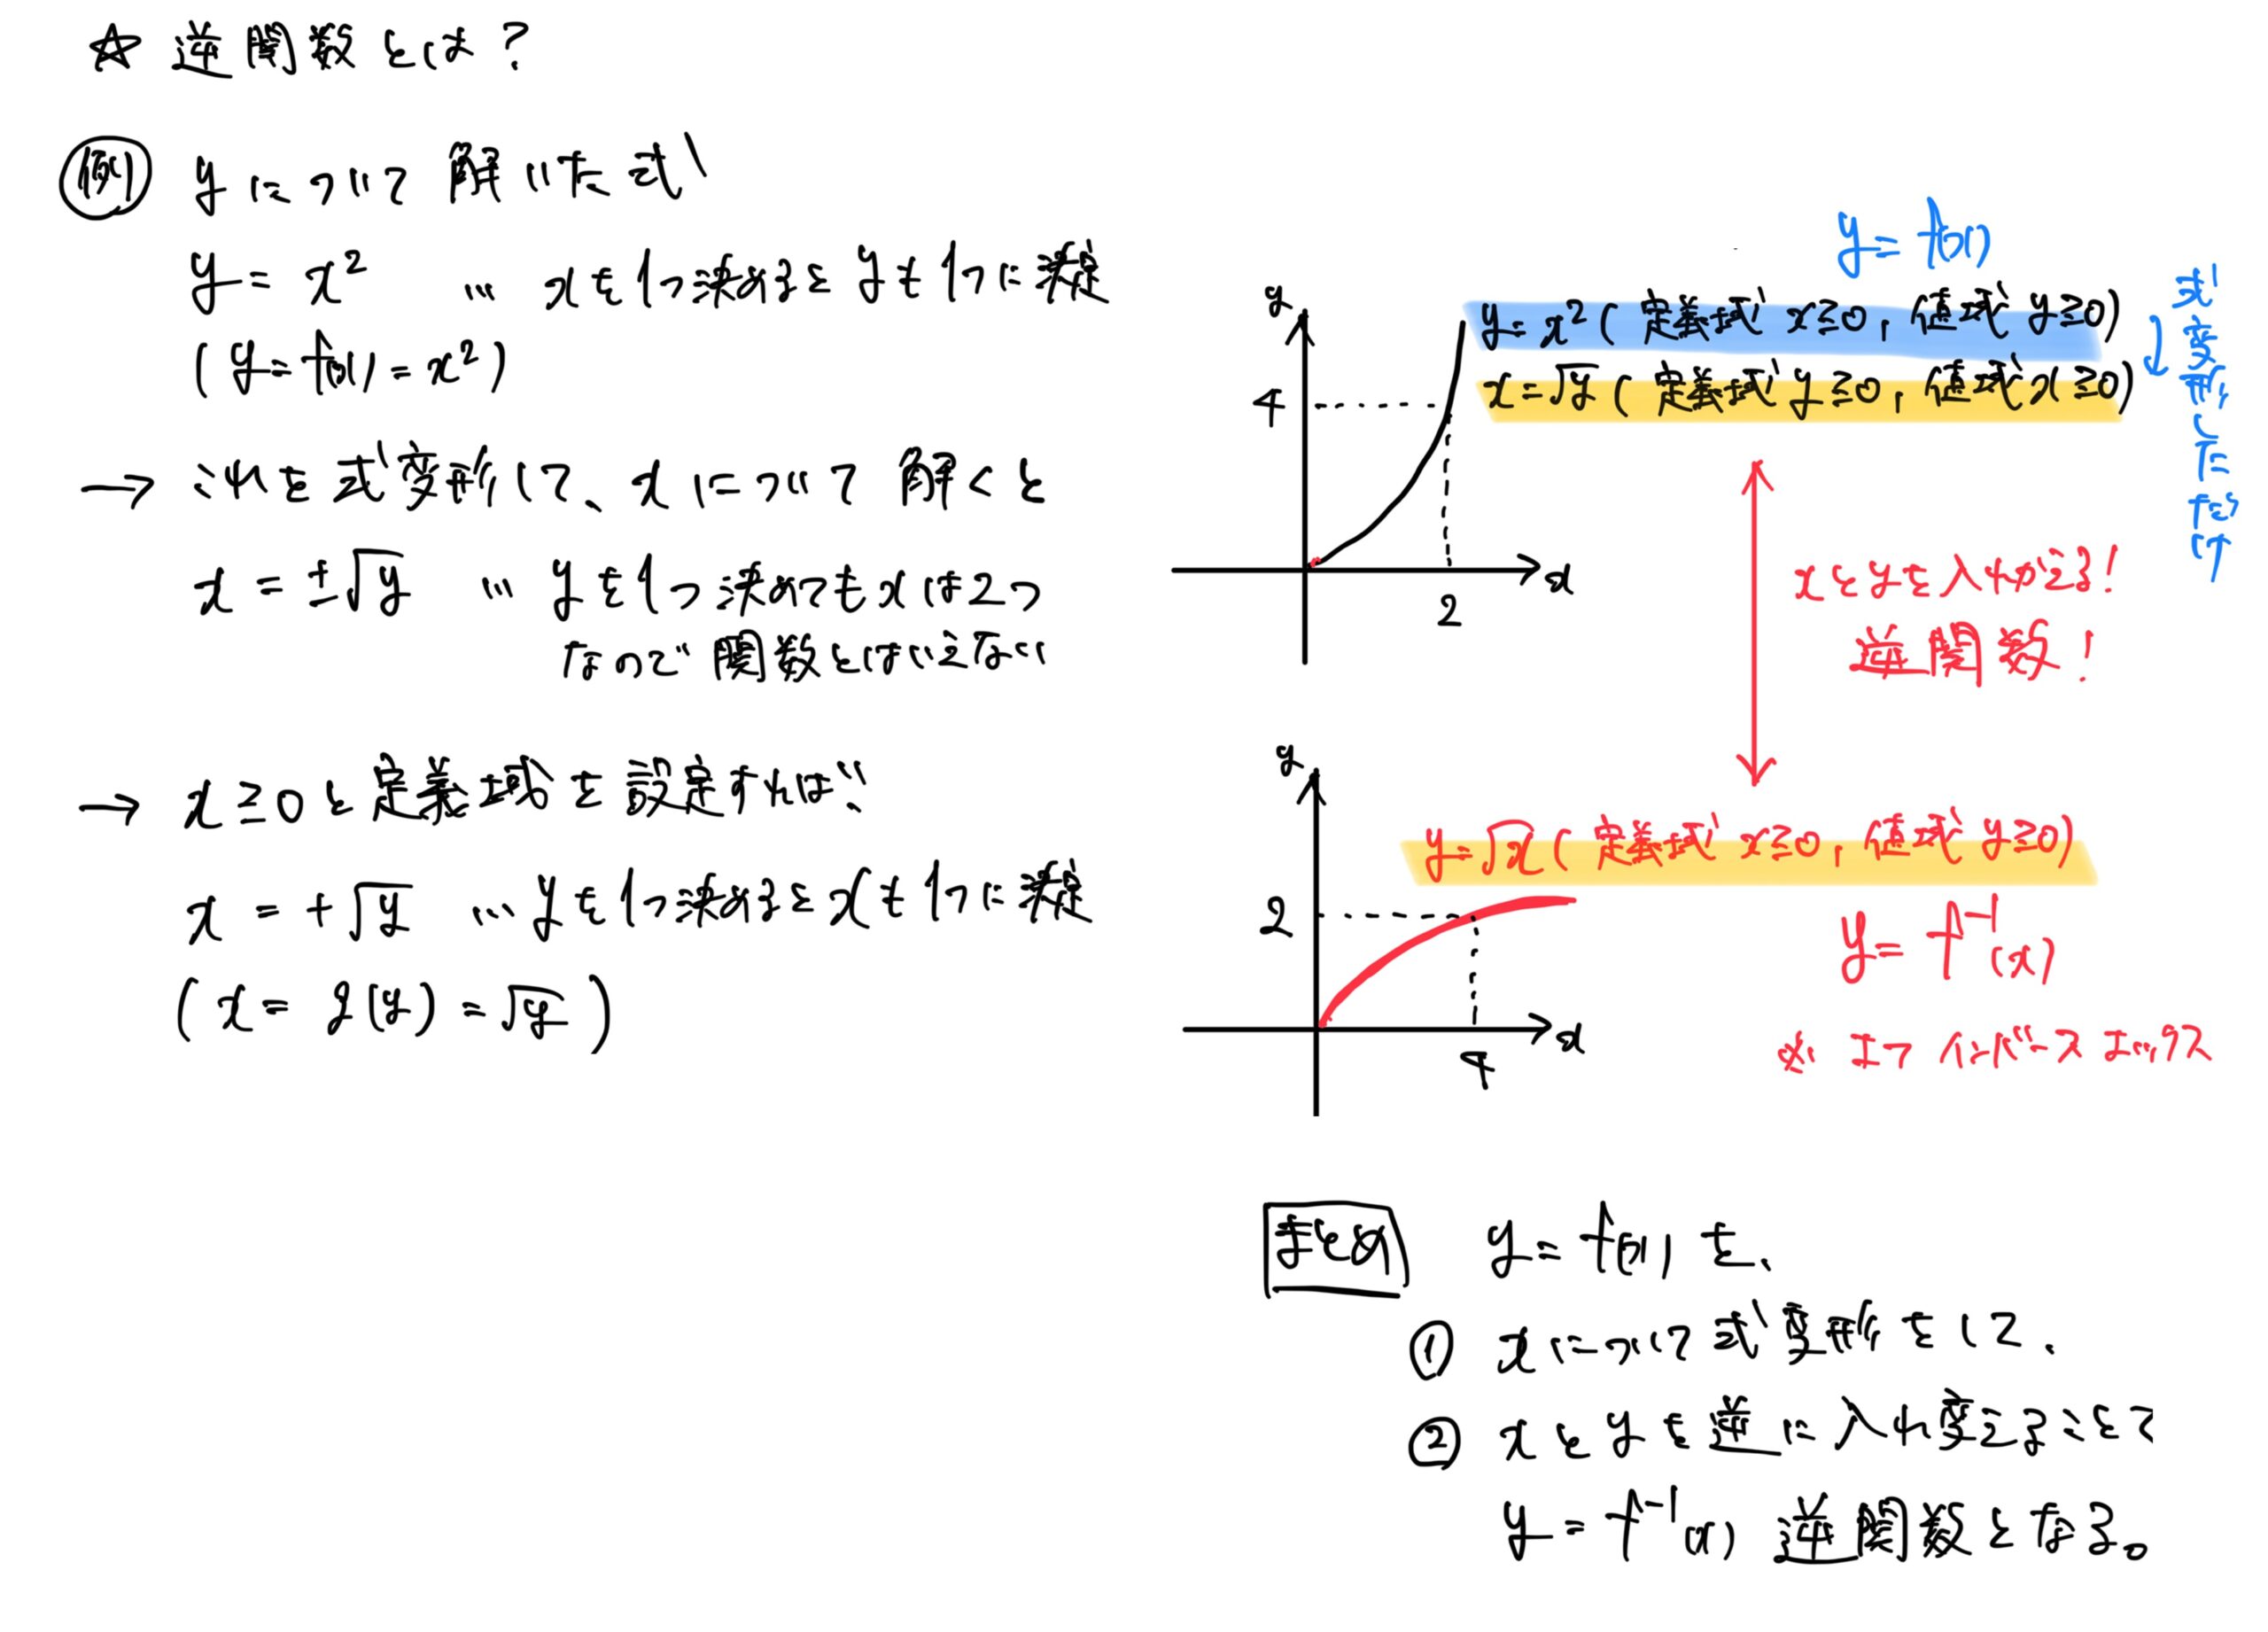 ☆ 逆関数とは？
例 yについて解いた式
y = x² … xを1つ決めるとyも1つに決定
(y = f(x) = x²)
→ これを式変形して、xについて解くと
x = ±√y … yを1つ決めてもxは2つ
なので関数とはいえない
→ x ≧ 0と定義域を設定すれば、
x = +√y … yを1つ決めるとxも1つに決定
(x = g(y) = √y)
y = f(x)
y = x² (定義域 x≧0, 値域 y≧0)
x = √y (定義域 y≧0, 値域 x≧0)
式変形しただけ
y
4
2
x
xとyを入れかえる!
逆関数!
y
y = √x (定義域 x≧0, 値域 y≧0)
2
y = f⁻¹(x)
x
4
※ エフ インバース エックス
まとめ y = f(x) を、
① xについて式変形をして、
② xとyを逆に入れ変えることで
y = f⁻¹(x) 逆関数となる。